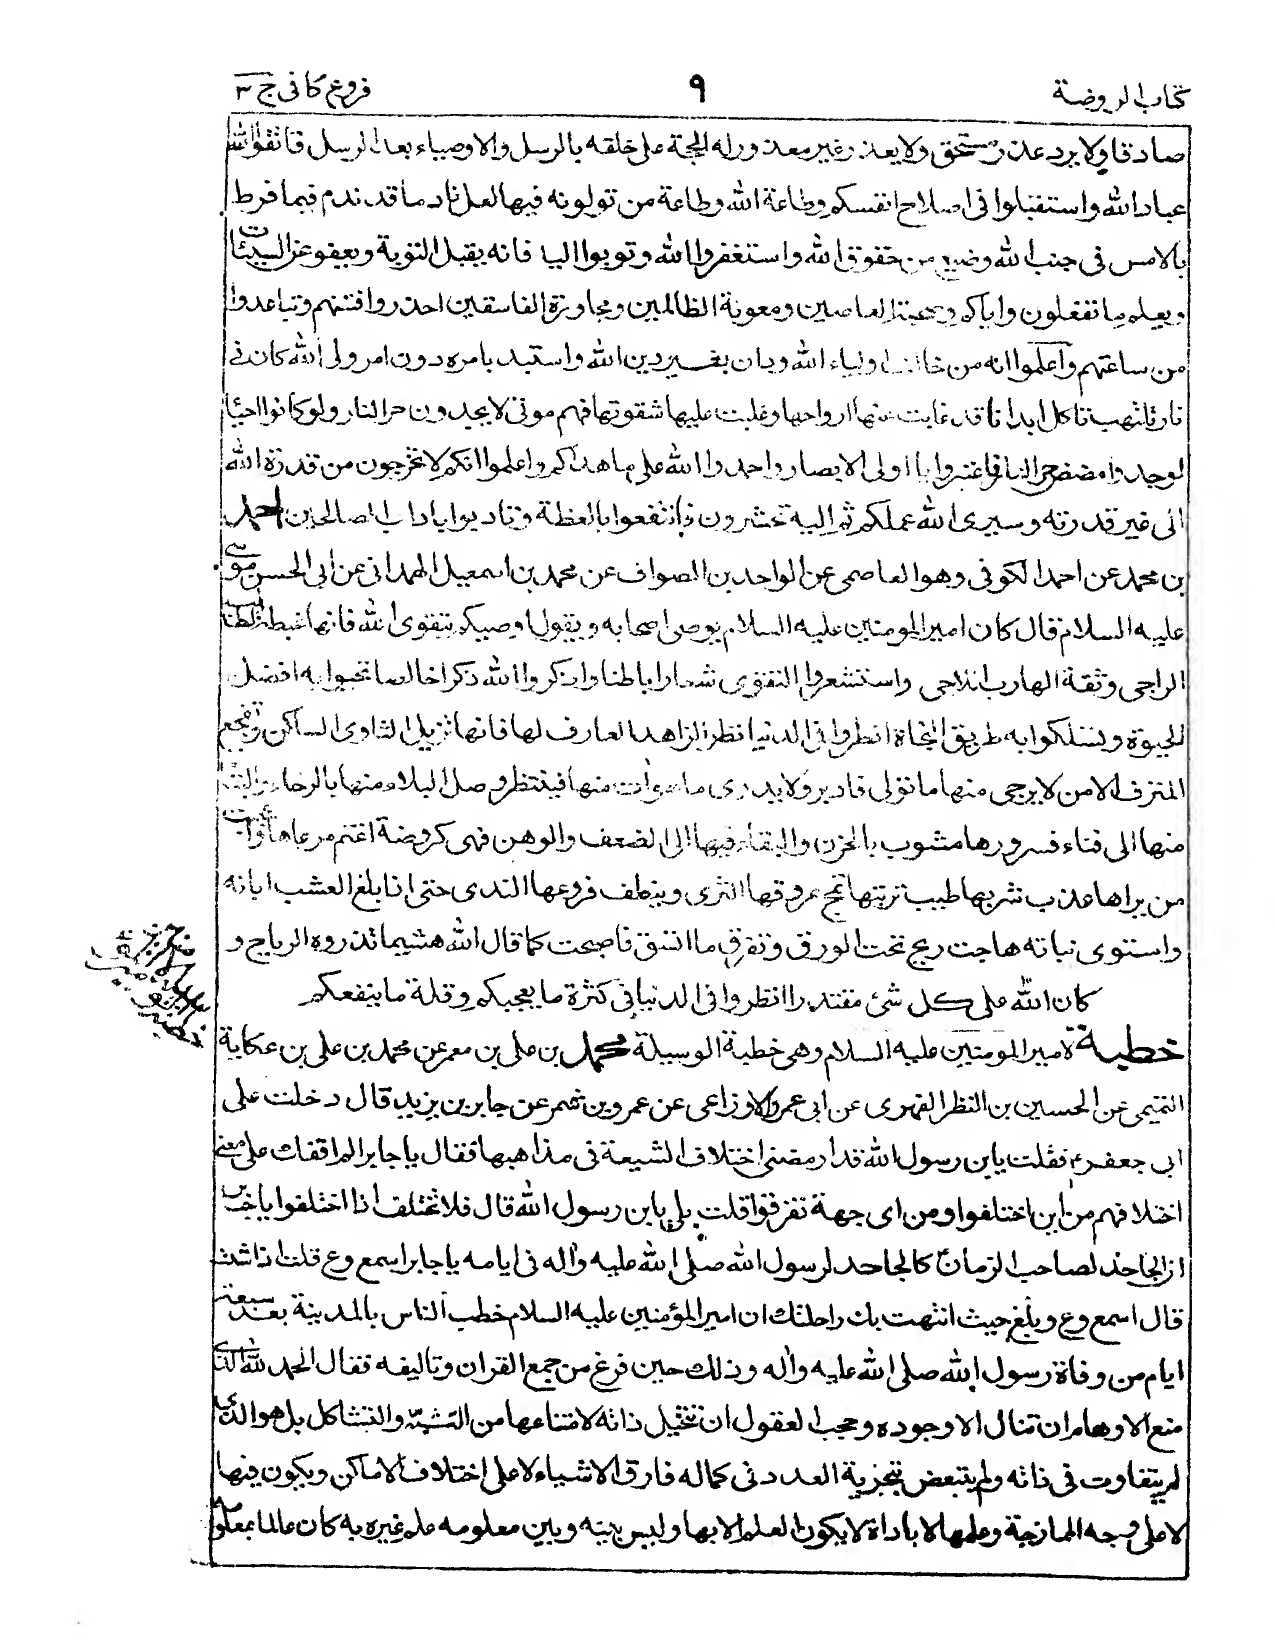 كتاب الروضة ٩ فروع كافى ج ٣
صادقا ولا يرد عذر مستحق ولا يعذر غير معذور له الحجة على خلقه بالرسل والاوصياء بعد الرسل فاتقوا الله
عباد الله واستقبلوا فى اصلاح انفسكم وطاعة الله وطاعة من تولونه فيها لعل نادما قد ندم فيما فرط
بالامس فى جنب الله وضيع من حقوق الله واستغفروا الله وتوبوا اليه فانه يقبل التوبة ويعفو عن السيئات
ويعلم ما تفعلون واياكم وصحبة العاصين ومعونة الظالمين ومجاورة الفاسقين احذروا فتنتهم وتباعدوا
من ساحتهم واعلموا انه من خالف اولياء الله ودان بغير دين الله واستبد بامره دون امر ولى الله كان فى
نار تلتهب تاكل ابدانا قد غابت عنها ارواحها وغلبت عليها شقوتها فهم موتى لا يجدون حر النار ولو كانوا احياء
لوجدوا مضض حر النار فاعتبروا يا اولى الابصار واحمدوا الله على ما هداكم واعلموا انكم لا تخرجون من قدرة الله
الى غير قدرته وسيرى الله عملكم ثم اليه تحشرون فانتفعوا بالعظة وتادبوا باداب الصالحين احمد
بن محمد عن احمد الكوفى وهو العاصمى عن الواحد بن الصواف عن محمد بن اسمعيل الهمدانى عن ابى الحسن موسى
عليه السلام قال كان امير المومنين عليه السلام يوصى اصحابه ويقول اوصيكم بتقوى الله فانها غبطة الطالب
الراجى وثقة الهارب اللاجى واستشعروا التقوى شعارا باطنا واذكروا الله ذكرا خالصا تحيوا به افضل
الحيوة وتسلكوا به طريق النجاة انظروا فى الدنيا نظر الزاهد العارف لها فانها تزيل الثاوى الساكن وتفجع
المترف الامن لا يرجى منها ما تولى فادبر ولا يدرى ما هوات منها فينتظر وصل البلاء منها بالرخاء والبقاء
منها الى فناء فسرورها مشوب بالحزن والبقاء فيها الى الضعف والوهن فهى كروضة اعتم مرعاها واعجبت
من يراها عذب شربها طيب تربتها تمج عروقها الثرى وينطف فروعها الندى حتى اذا بلغ العشب ابانه
واستوى نباته هاجت ريح تحت الورق وتفرق ما اتسق فاصبحت كما قال الله هشيما تذروه الرياح و
كان الله على كل شئ مقتدرا انظروا فى الدنيا فى كثرة ما يعجبكم وقلة ما ينفعكم
خطبة لامير المومنين عليه السلام وهى خطبة الوسيلة محمد بن على بن معمر عن محمد بن على بن عكاية
التميمى عن الحسين بن النظر الفهرى عن ابى عمرو الاوزاعى عن عمرو بن شمر عن جابر بن يزيد قال دخلت على
ابى جعفر ع فقلت يابن رسول الله قد ارمضنى اختلاف الشيعة فى مذاهبها فقال يا جابر الم اقفك على معنى
اختلافهم من اين اختلفوا ومن اى جهة تفرقوا قلت بلى يابن رسول الله قال فلا تختلف اذا اختلفوا يا جابر
ان الجاحد لصاحب الزمان كالجاحد لرسول الله صلى الله عليه واله فى ايامه يا جابر اسمع وع قلت اذا شئت
قال اسمع وع وبلغ حيث انتهت بك راحلتك ان امير المؤمنين عليه السلام خطب الناس بالمدينة بعد سبعة
ايام من وفاة رسول الله صلى الله عليه واله وذلك حين فرغ من جمع القران وتاليفه فقال الحمد لله الذى
منع الاوهام ان تنال الا وجوده وحجب العقول ان تختيل ذاته لامتناعها من الشبه والتشاكل بل هو الذى
لم يتفاوت فى ذاته ولم يتبعض بتجزية العدد فى كماله فارق الاشياء لا على اختلاف الاماكن ويكون فيها
لا على وجه الممازجة وعلمها لا باداة لا يكون العلم الا بها وليس بينه وبين معلومه علم غيره به كان عالما بمعلومه